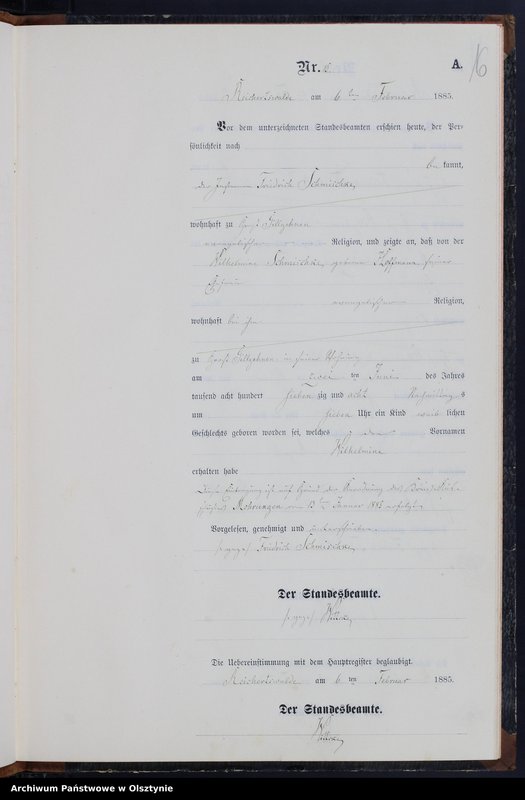 Nr. 15 A. 16
Reichertswalde am 6 ten Februar 1885.
Vor dem unterzeichneten Standesbeamten erschien heute, der Per-
sönlichkeit nach
be kannt,
der Friedrich Schmischke,
wohnhaft zu Groß Gillgehnen
evangelischer Religion, und zeigte an, daß von der
Wilhelmine Schmischke, geborene Hoffmann seiner
Ehefrau
evangelischer Religion,
wohnhaft bei ihm
zu Groß Gillgehnen in seiner Wohnung
am zwei ten Juni des Jahres
tausend acht hundert sieben zig und acht Nachmittag s
um sieben Uhr ein Kind weib lichen
Geschlechts geboren worden sei, welches den Vornamen
Wilhelmine
erhalten habe
Diese Eintragung ist auf Grund der Anordnung des
Mohrungen vom 13 ten Januar 1885 erfolgt.
Vorgelesen, genehmigt und unterschrieben.
Friedrich Schmischke,
Der Standesbeamte.
Die Uebereinstimmung mit dem Hauptregister beglaubigt.
Reichertswalde am 6 ten Februar 1885.
Der Standesbeamte.
Archiwum Państwowe w Olsztynie